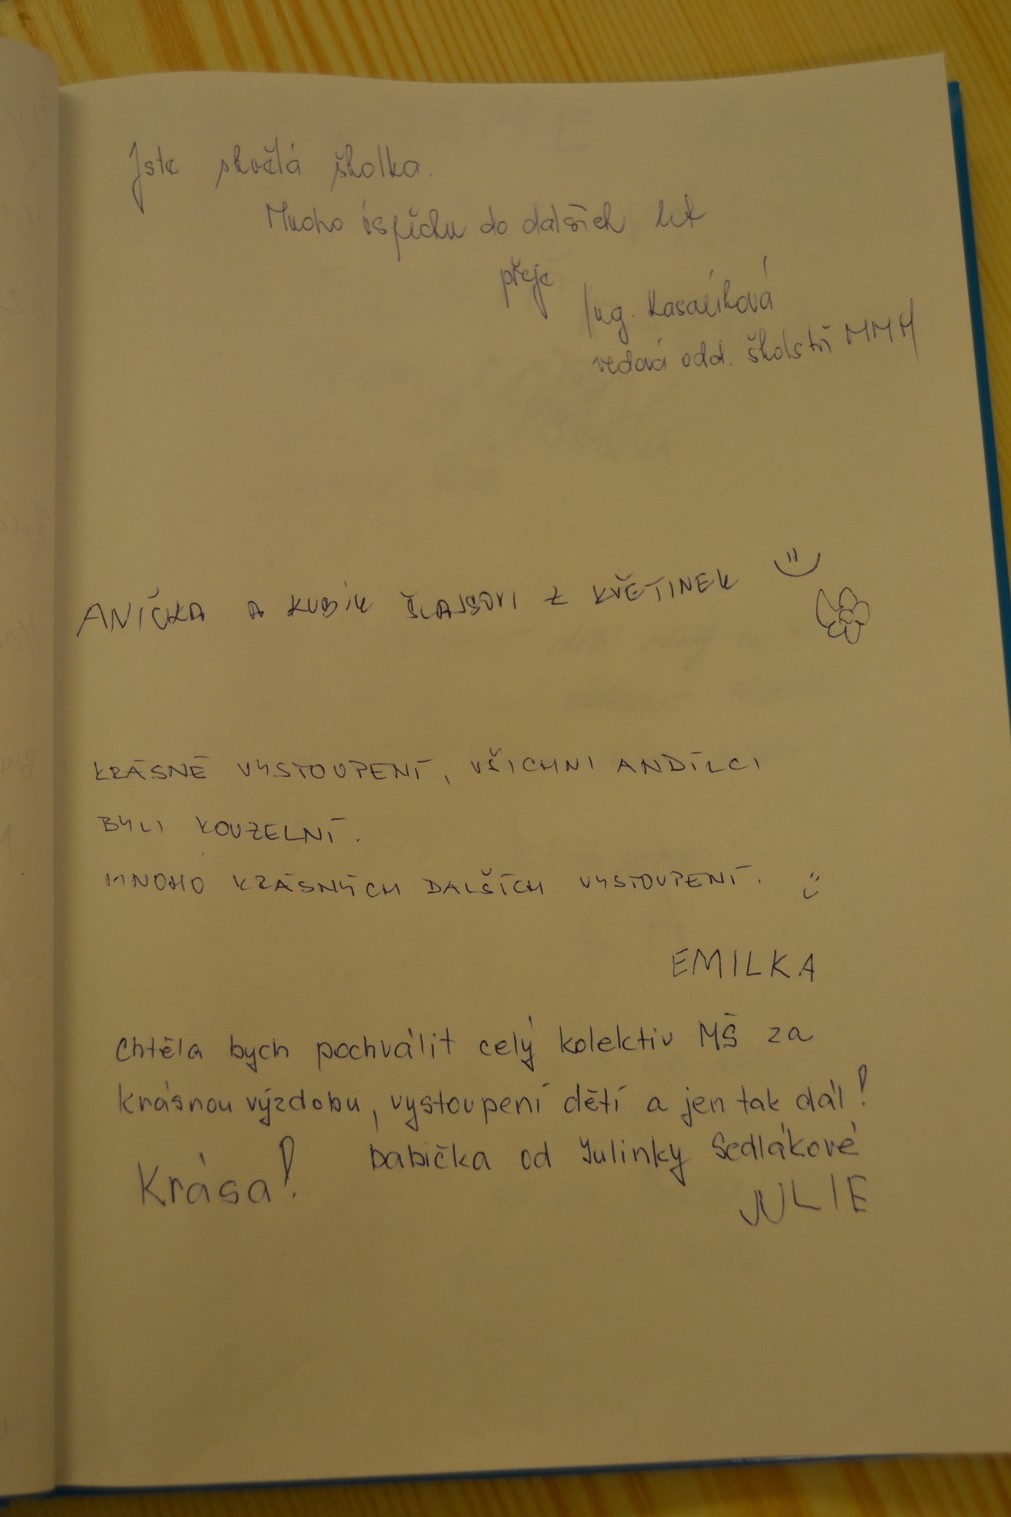 Jste skvělá školka.
Mnoho úspěchu do dalších let
přeje
Ing. Kasalíková
vedoucí odd. školství MMH
ANIČKA A KUBÍK ŠLAJSOVI Z KVĚTINEK
KRÁSNÉ VYSTOUPENÍ, VŠICHNI ANDÍLCI
BYLI KOUZELNÍ.
MNOHO KRÁSNÝCH DALŠÍCH VYSTOUPENÍ. :)
EMILKA
Chtěla bych pochválit celý kolektiv MŠ za
krásnou výzdobu, vystoupení dětí a jen tak dál!
babička od Julinky Sedlákové
Krása!
JULIE